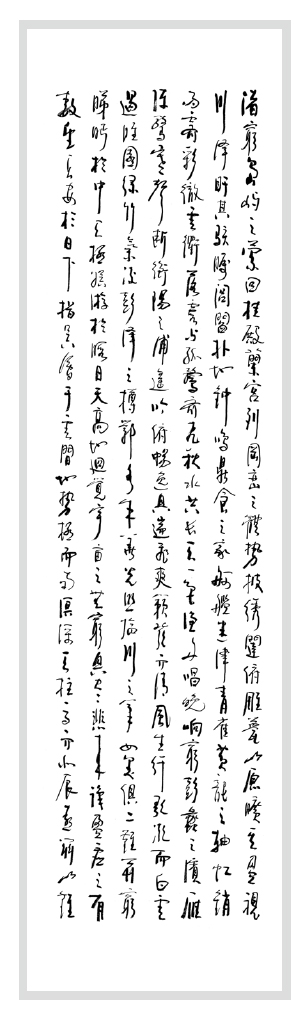 渚窮島嶼之縈回桂殿蘭宮列岡巒之體勢披繡闥俯雕甍山原曠其盈視
川澤盱其駭矚閭閻撲地鍾鳴鼎食之家舸艦迷津青雀黃龍之軸虹銷
雨霽彩徹雲衢落霞與孤鶩齊飛秋水共長天一色漁舟唱晚響窮彭蠡之濱雁
陣驚寒聲斷衡陽之浦遙吟俯暢逸興遄飛爽籟發而清風生纖歌凝而白雲
遏睢園綠竹氣凌彭澤之樽鄴水朱華光照臨川之筆四美俱二難并窮
睇眄於中天極娛遊於暇日天高地迥覺宇宙之無窮興盡悲來識盈虛之有
數望長安於日下指吳會于雲間地勢極而南溟深天柱高而北辰遠關山難